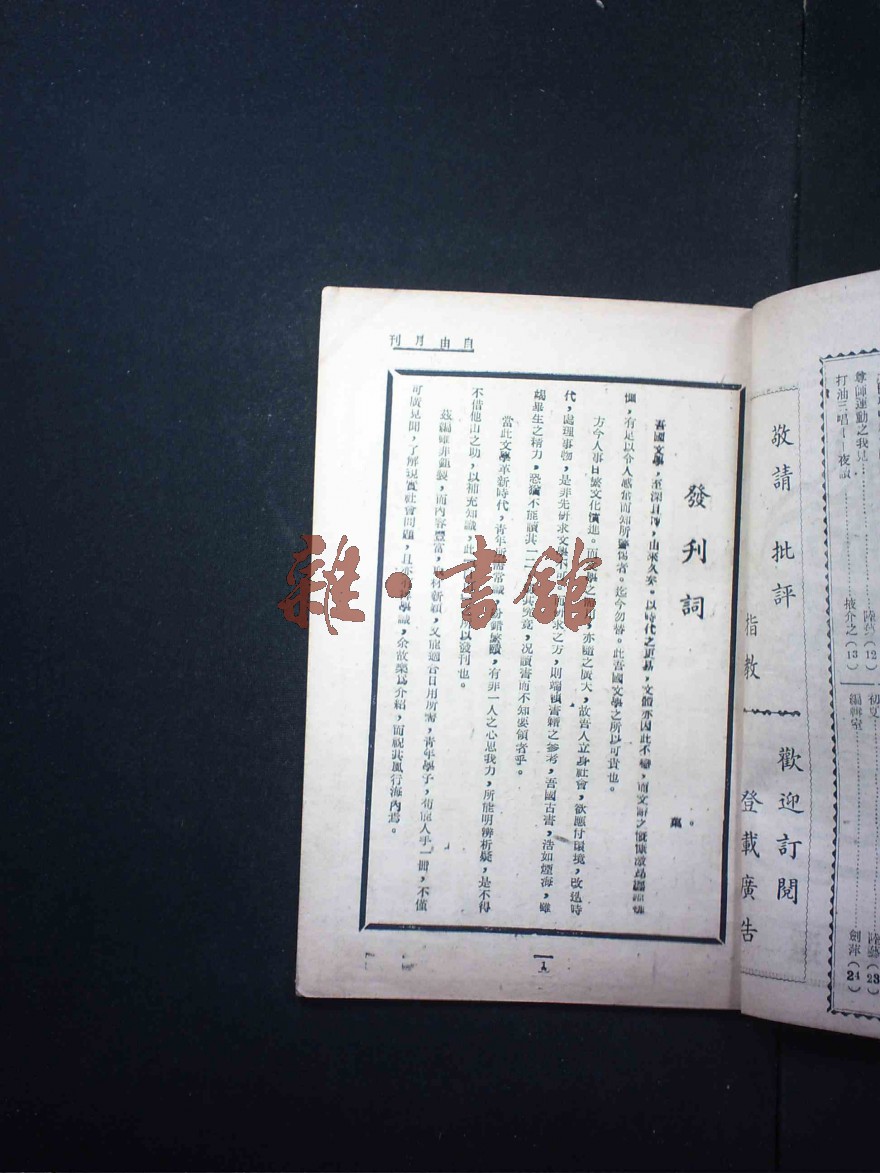 自由月刊
發刊詞
吾國文學，至深且博，由來久矣。以時代之更易，文體亦因此不變，而文辭之慷慨激昂
，有足以令人感奮而知所警惕者。迄今勿替。此吾國文學之所以可貴也。
方今人事日繁文化演進。而文學之亦隨之廣大，故吾人立身社會，欲應付環境，改造時
代，處理事物，是非先研求文學不求之方，則端賴書籍之參考，吾國古書，浩如煙海，雖
竭畢生之精力，恐猶不能讀其一二其究竟，况讀書而不知要領者乎。
當此文學革新時代，青年所需常識紛錯繁賾，有非一人之心思我力，所能明辨析疑，是不得
不借他山之助，以補充知識，此所以發刊也。
茲編雖非鉅製，而內容豐富，取材新穎，又能適合日用所需，青年學子，荀能人手一冊，不僅
可廣見聞，了解現實社會問題，且亦學識，余故樂爲介紹，而祝其風行海內焉。
1
雜·書館
敬請批評
指教
歡迎訂閱
登載廣告
尊師運動之我見
打油三唱
夜讀
陸藝(12)
掖介之(13)
初夏
編輯室
陸藝(23)
劍萍(24)